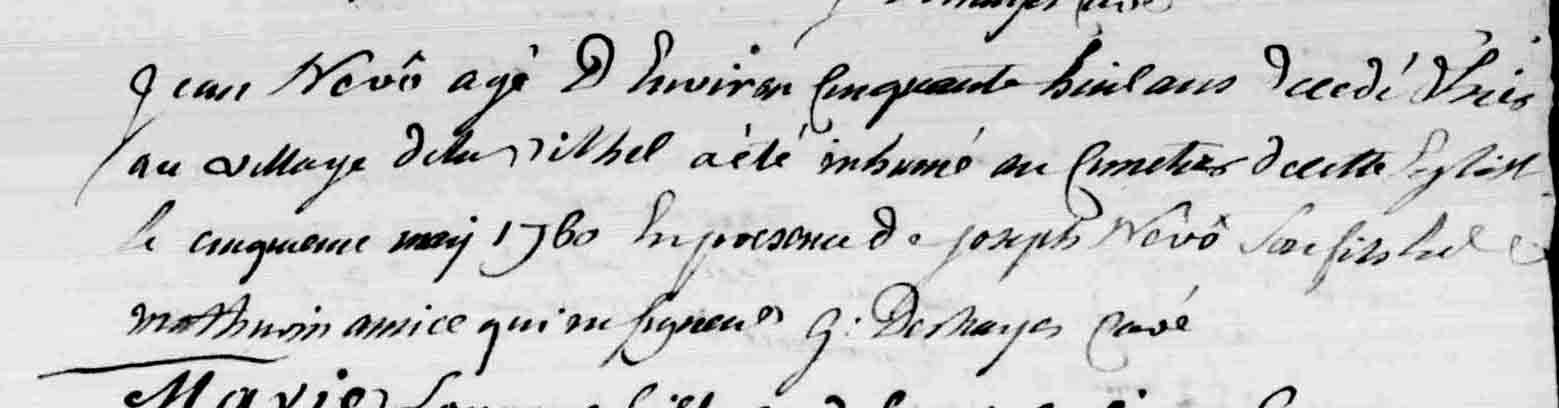 Deshayes curé
Jean Nevô agé D Environ Cinquante huit ans decedé d'hier
au village dela vithel a été inhumé au Cimetier de cette Eglise
le cinquieme may 1760 En presence de joseph Nevô Son fils
mathurin amice qui ne signent g: Deshayes curé
Marie